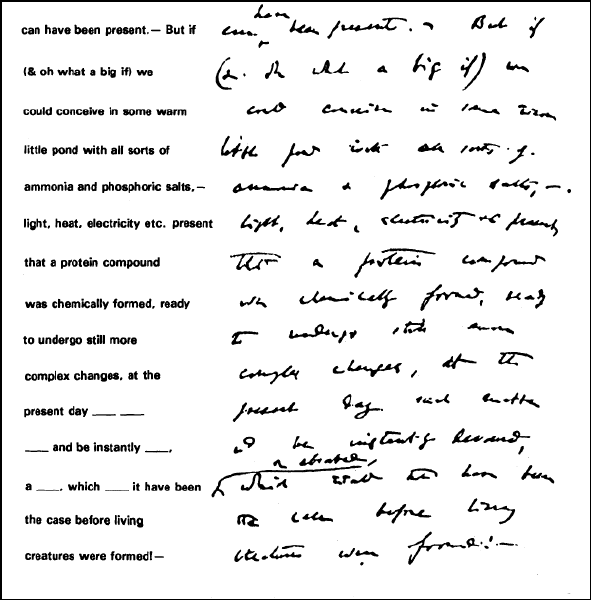 can have been present.— But if
can have been present. — But if
(& oh what a big if) we
(& oh what a big if) we
could conceive in some warm
could conceive in some warm
little pond with all sorts of
little pond with all sorts of
ammonia and phosphoric salts,—
ammonia & phosphoric salts, —
light, heat, electricity etc. present
light, heat, electricity &c present
that a protein compound
that a protein compound
was chemically formed, ready
was chemically formed, ready
to undergo still more
to undergo still more
complex changes, at the
complex changes, at the
present day ___ ___
present day such matter
___ and be instantly ___,
wd be instantly devoured,
or absorbed,
a ___, which ___ it have been
which would not have been
the case before living
the case before living
creatures were formed!—
creatures were formed! —